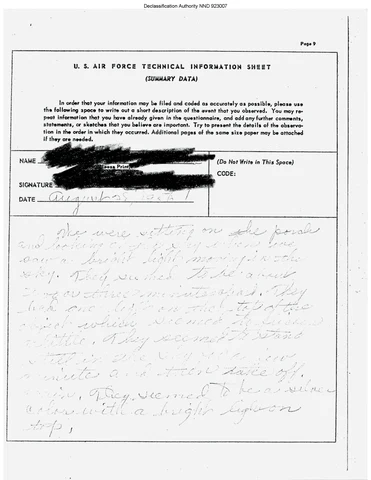 Declassification Authority NND 923007
Page 9
U. S. AIR FORCE TECHNICAL INFORMATION SHEET
(SUMMARY DATA)
In order that your information may be filed and coded as accurately as possible, please use
the following space to write out a short description of the event that you observed. You may re-
peat information that you have already given in the questionnaire, and add any further comments,
statements, or sketches that you believe are important. Try to present the details of the observa-
tion in the order in which they occurred. Additional pages of the same size paper may be attached
if they are needed.
NAME
(Please Print)
(Do Not Write in This Space)
CODE:
SIGNATURE
DATE August
We were sitting on the porch
and looking
saw a bright light moving in the
sky. They seemed to be
three minutes apart. They
had one light on the top of the
object which seemed
a little. They seemed to stand
still in the sky for a few
minutes and then take off
again. They seemed to be a silver
color with a bright light on
top.